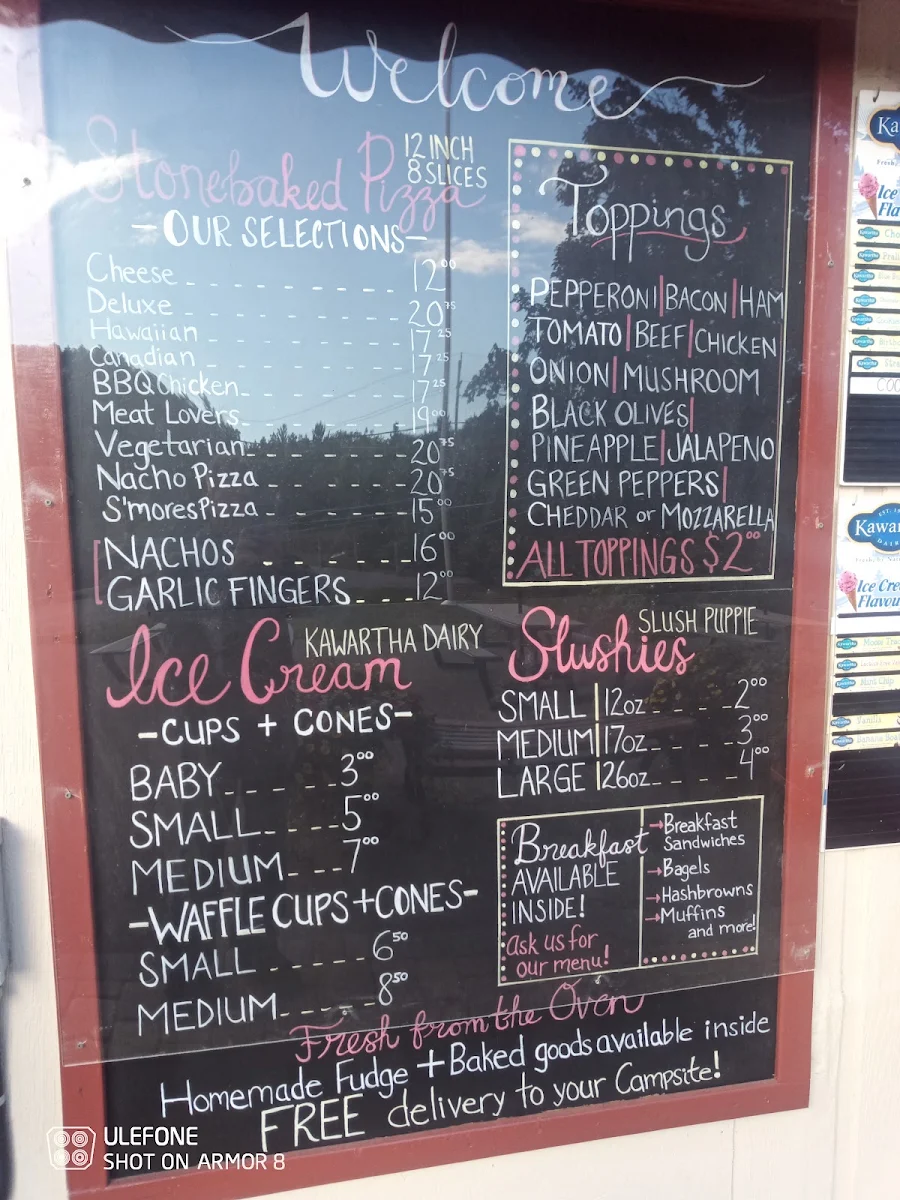 Welcome
Stonebaked Pizza
12 INCH
8 SLICES
-OUR SELECTIONS-
Cheese 12⁰⁰
Deluxe 20⁷⁵
Hawaiian 17²⁵
Canadian 17²⁵
BBQ Chicken 17²⁵
Meat Lovers 19⁰⁰
Vegetarian 20⁷⁵
Nacho Pizza 20⁷⁵
S'mores Pizza 15⁰⁰
NACHOS 16⁰⁰
GARLIC FINGERS 12⁰⁰
Toppings
PEPPERONI|BACON|HAM
TOMATO|BEEF|CHICKEN
ONION|MUSHROOM
BLACK OLIVES|
PINEAPPLE|JALAPENO
GREEN PEPPERS|
CHEDDAR or MOZZARELLA
ALL TOPPINGS $2⁰⁰
Ice Cream
KAWARTHA DAIRY
-CUPS + CONES-
BABY 3⁰⁰
SMALL 5⁰⁰
MEDIUM 7⁰⁰
-WAFFLE CUPS+CONES-
SMALL 6⁵⁰
MEDIUM 8⁵⁰
Slushies
SLUSH PUPPIE
SMALL | 12oz 2⁰⁰
MEDIUM | 17oz 3⁰⁰
LARGE | 26oz 4⁰⁰
Breakfast
AVAILABLE
INSIDE!
Ask us for
our menu!
→Breakfast
Sandwiches
→Bagels
→Hashbrowns
→Muffins
and more!
Fresh from the Oven
Homemade Fudge + Baked goods available inside
FREE delivery to your Campsite!
Ka
Ice
Fla
Kawar
Ice Cre
Flavou
Mint Chip
Vanilla
ULEFONE
SHOT ON ARMOR 8